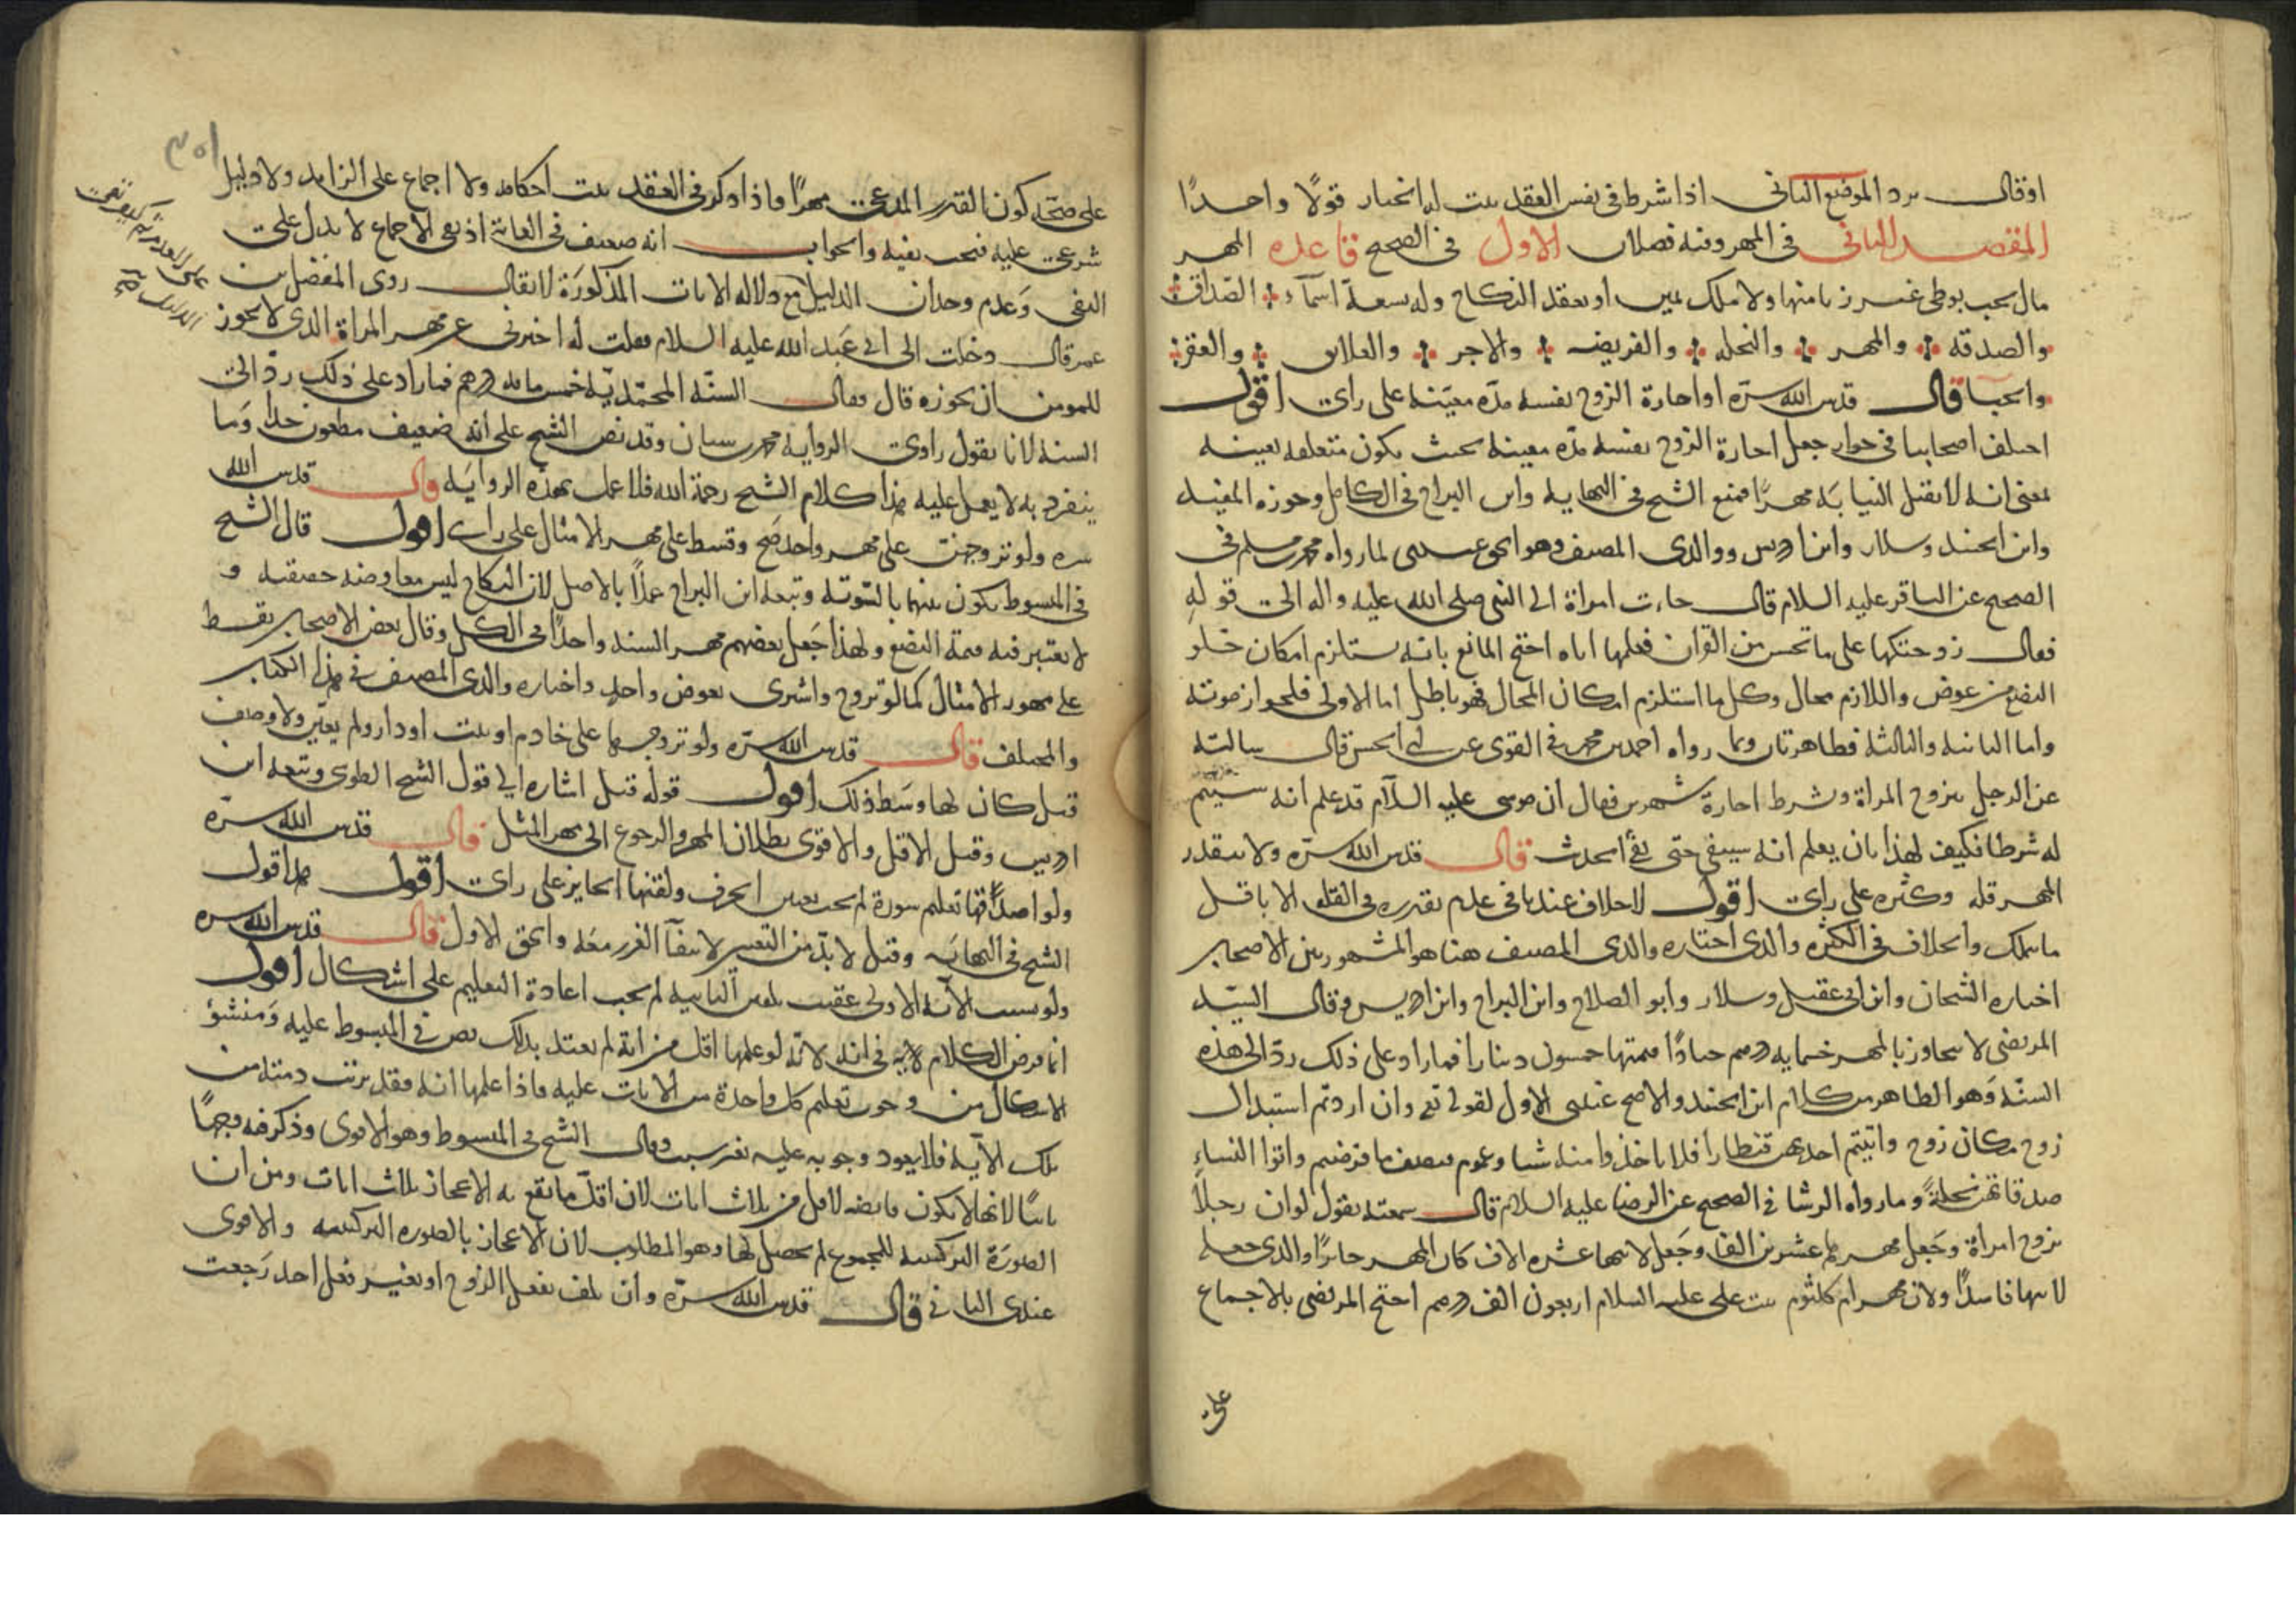 او قال يرد الموضع الثاني اذا شرط في نفس العقد يثبت له الخيار قولًا واحدًا
المقصد الثاني في المهر وفيه فصلان الاول في الصحيح قاعدة المهر
مال يجب بوطي غير زنا منها ولا ملك يمين او بعقد النكاح وله تسعة اسمآء الصداق
والصدقة والمهر والنحلة والفريضة والاجر والعلايق والعقر
والحبا قال قدس الله سرّه او اجارة الزوج نفسه مدّة معيّنة على راى اقول
اختلف اصحابنا في جواز جعل اجارة الزوج نفسه مدّة معينة بحيث يكون متعلقه بعينه
بمعنى انه لا يقبل النيابة مهرًا فمنع الشيخ في النهاية وابن البراج في الكامل وجوزه المفيد
وابن الجنيد وسلار وابن ادريس ووالدى المصنف وهو الحق عندى لما رواه محمد بن مسلم في
الصحيح عن الباقر عليه السلام قال جاءت امراة الى النبي صلى الله عليه واله الى قوله
فقال زوجتكها على ما تحسن من القران فعلمها اياه احتج المانع بانه يستلزم امكان خلو
البضع من عوض واللازم محال وكل ما استلزم امكان المحال فهو باطل اما الاولى فلجواز موته
واما الثانية والثالثة فظاهرتان وبما رواه احمد بن محمد في القوى عن ابى الحسن قال سالته
عن الرجل يتزوج المراة ويشرط اجارة شهرين فقال ان موسى عليه السلام قد علم انه سيتم
له شرطه فكيف لهذا بان يعلم انه سيبقى حتّى يفى الحديث قال قدس الله سرّه ولا يتقدر
المهر قله وكثره على راى اقول لا خلاف عندنا في عدم تقديره في القله الا باقل
ما يملك والخلاف في الكثره والذى اختاره والدى المصنف هنا هو المشهور بين الاصحاب
اختاره الشيخان وابن ابى عقيل وسلار وابو الصلاح وابن البراج وابن ادريس وقال السيّد
المرتضى لا يتجاوز بالمهر خمسمايه درهم جيادًا قيمتها خمسون دينارا فما زاد على ذلك ردّ الى هذه
السنّة وهو الظاهر من كلام ابن الجنيد والاصح عندى الاول لقوله تع وان اردتم استبدال
زوج مكان زوج واتيتم احديهن قنطارا فلا تاخذوا منه شيا وعموم فنصف ما فرضتم واتوا النساء
صدقاتهن نحلةً وما رواه الوشا في الصحيح عن الرضا عليه السلام قال سمعته يقول لو ان رجلًا
تزوج امراة وجعل مهرها عشرين الفا وجعل لابيها عشرة الاف كان المهر جايزًا والذى جعله
لابيها فاسدًا ولان مهر ام كلثوم بنت على عليه السلام اربعون الف درهم احتج المرتضى بالاجماع
على
على صحّة كون القدر المدعى مهرًا فاذا ذكر في العقد يثبت احكامه ولا اجماع على الزايد ولا دليل
شرعى عليه فيجب نفيه والجواب انه ضعيف في الغاية اذ نفى الاجماع لا يدل على
النفى وعدم وجدان الدليل مع دلاله الايات المذكورة لا يقال روى المفضل بن
عمر قال دخلت الى ابى عبد الله عليه السلام فقلت له اخبرنى عن مهر المراة الذى لا يجوز
للمومن ان يجوزه قال فقال السنّة المحمّديّة خمس مائة درهم فما زاد على ذلك ردّ الى
السنة لانا نقول راوى الرواية محمد بن سنان وقد نص الشيخ على انه ضعيف مطعون جدا وما
ينفرد به لا يعمل عليه هذا كلام الشيخ رحمة الله فلا عمل بهذه الرواية قال قدس الله
سره ولو تزوجهن على مهر واحد صح وقسط على مهر الامثال على راى اقول قال الشيخ
في المبسوط يكون بينهما بالسّوية وتبعه ابن البراج عملًا بالاصل لان النكاح ليس معاوضة حقيقة و
لا يعتبر فيه قيمة البضع ولهذا جعل بعضهم مهر السنة واحدًا في الكل وقال بعض الاصحاب يقسط
على مهور الامثال كما لو تزوج واشترى بعوض واحد واختاره والدى المصنف في هذا الكتاب
والمختلف قال قدس الله سرّه ولو تزوجها على خادم او بيت او دار ولم يعيّن ولا وصف
قيل كان لها وسط ذلك اقول قوله قيل اشاره الى قول الشيخ الطوسى وتبعه ابن
ادريس وقيل الاقل والاقوى بطلان المهر والرجوع الى مهر المثل قال قدس الله سرّه
ولو اصدقها تعليم سورة لم يجب تعيين الحرف ولقنها الجايز على راى اقول هذا قول
الشيخ في النهاية وقيل لا بدّ من التعيين لانتفآ الغرر معه والحق الاول قال قدس الله سره
ولو نسيت الآية الاولى عقيب تلقين الثانية لم يجب اعادة التعليم على اشكال اقول
انما فرض الكلام في اية لانه لو علمها اقل من اية لم يعتد بذلك نص في المبسوط عليه ومنشؤ
الاشكال من وجوب تعليم كل واحدة من الايات عليه فاذا علمها اية فقد برئت ذمته من
تلك الآية فلا يعود وجوبه عليه بغير سبب وقال الشيخ في المبسوط وهو الاقوى وذكر فيه وجهًا
ثانيًا لانها لا يكون قابضه لاقل من ثلاث ايات لان اقلّ ما يقع به الاعجاز ثلاث ايات ومن ان
الصورة التركيبية للمجموع لم يحصل لها وهو المطلوب لان الاعجاز بالصورة التركيبية والاقوى
عندى الثانى قال قدس الله سرّه وان تلف بفعل الزوج او بغير فعل احد رجعت